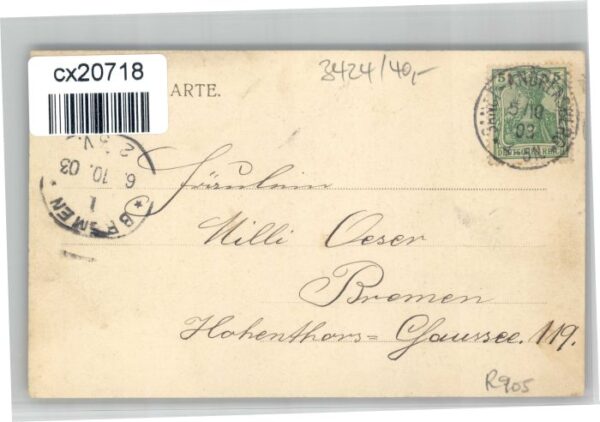 cx20718
ARTE.
3424/40,-
SANKT ANDREASBERG
5.10
03
5N.
Fräulein
Milli Oeser
Bremen
Hohenthors=Chaussee. 119.
* BREMEN *
1
6.10.03
R905